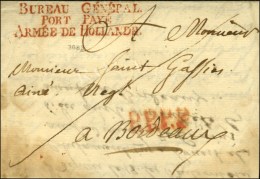 BUREAU GÉNÉRAL
PORT PAYÉ
ARMÉE DE HOLLANDE.
A Monsieur
Monsieur Saint
ainé Negt
à Bordeaux